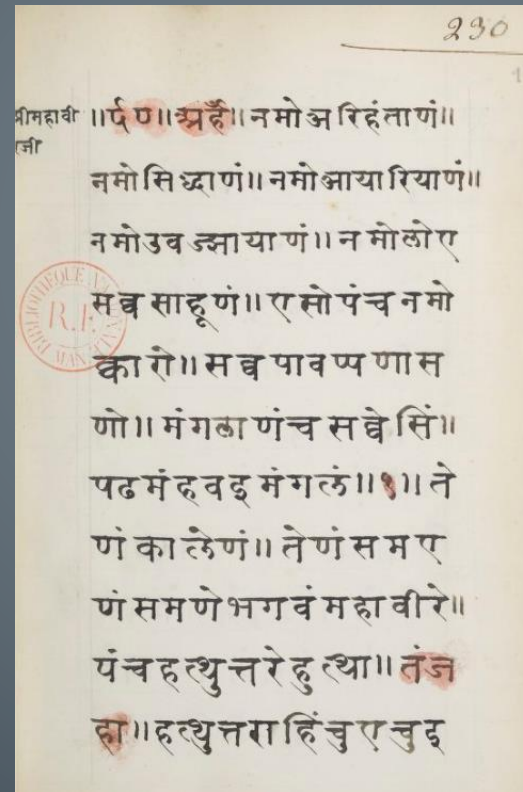 230
1
श्रीमहावी
रजी
॥र्षण॥अर्हं॥नमोअरिहंताणं॥
नमोसिद्धाणं॥नमोआयारियाणं॥
नमोउवज्झायाणं॥नमोलोए
सव्वसाहूणं॥एसोपंचनमो
क्कारो॥सव्वपावप्पणास
णो॥मंगलाणंचसव्वेसिं॥
पढमंहवइमंगलं॥१॥ते
णंकालेणं॥तेणंसमए
णंसमणेभगवंमहावीरे॥
पंचहत्थुत्तरेहुत्था॥तंज
हा॥हत्थुत्तराहिंचुएचुइ
BIBLIOTHEQUE NATIONALE
R.F.
MAN.